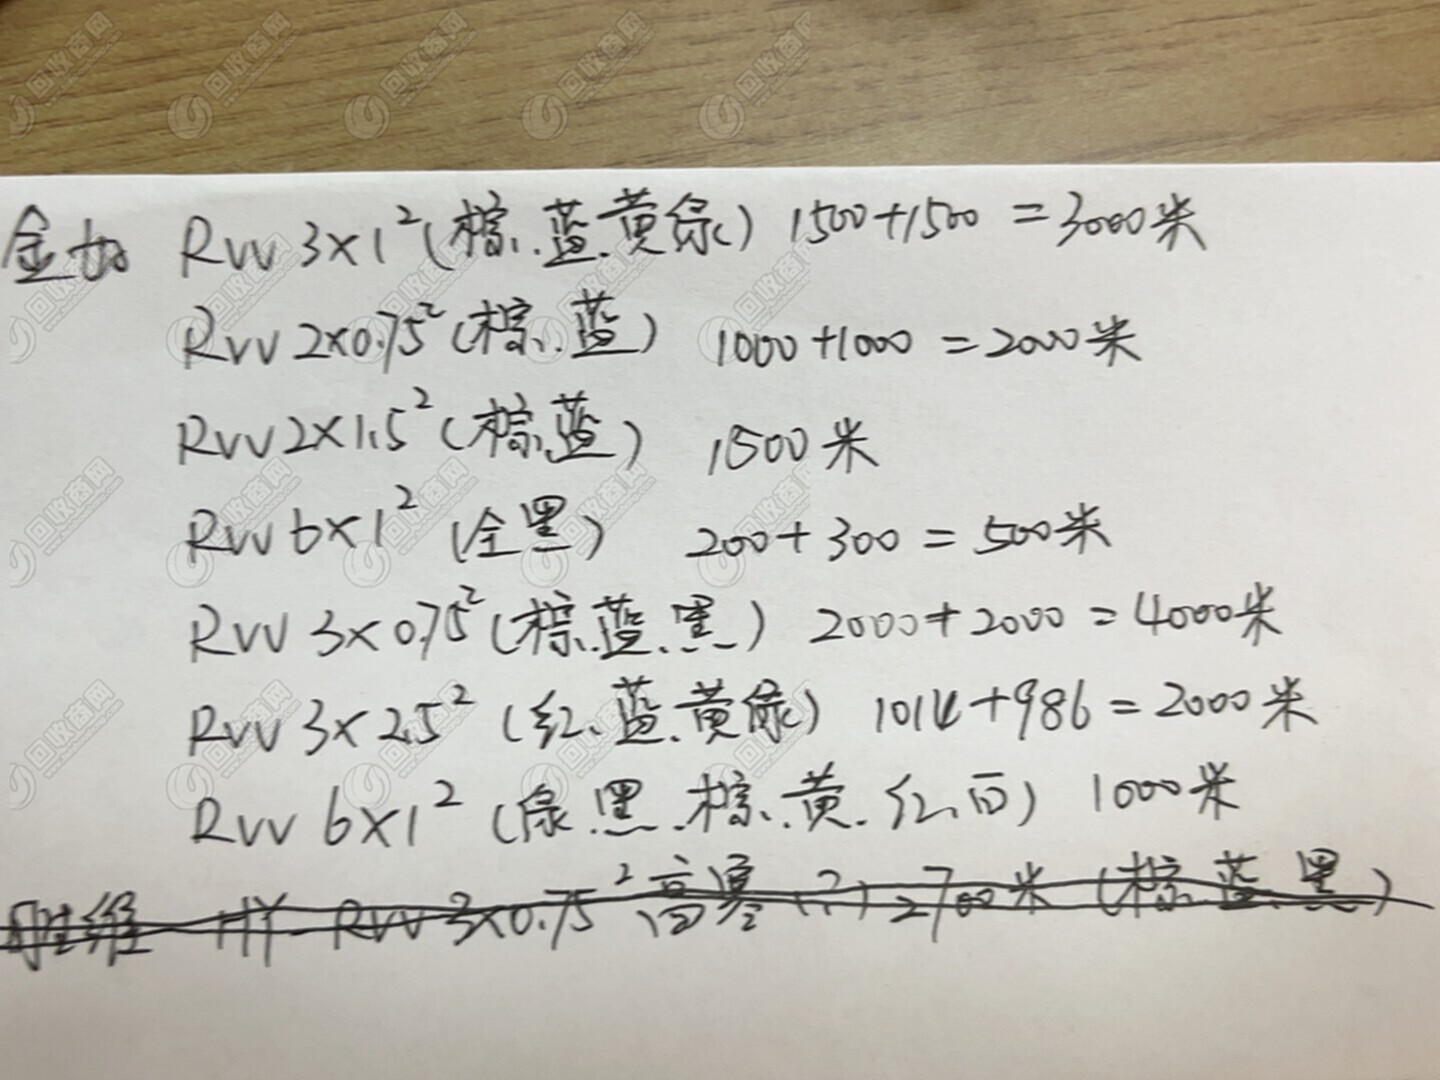 金加 RVV 3×1²(棕.蓝.黄绿) 1500+1500=3000米
RVV 2×0.75²(棕.蓝) 1000+1000=2000米
RVV 2×1.5²(棕.蓝) 1500米
RVV 6×1² (全黑) 200+300=500米
RVV 3×0.75²(棕.蓝.黑) 2000+2000=4000米
RVV 3×2.5² (红.蓝.黄绿) 1014+986=2000米
RVV 6×1² (绿.黑.棕.黄.红.白) 1000米
RVV 3×0.75² 高寒(2) 2700米 (棕.蓝.黑)
回收商网